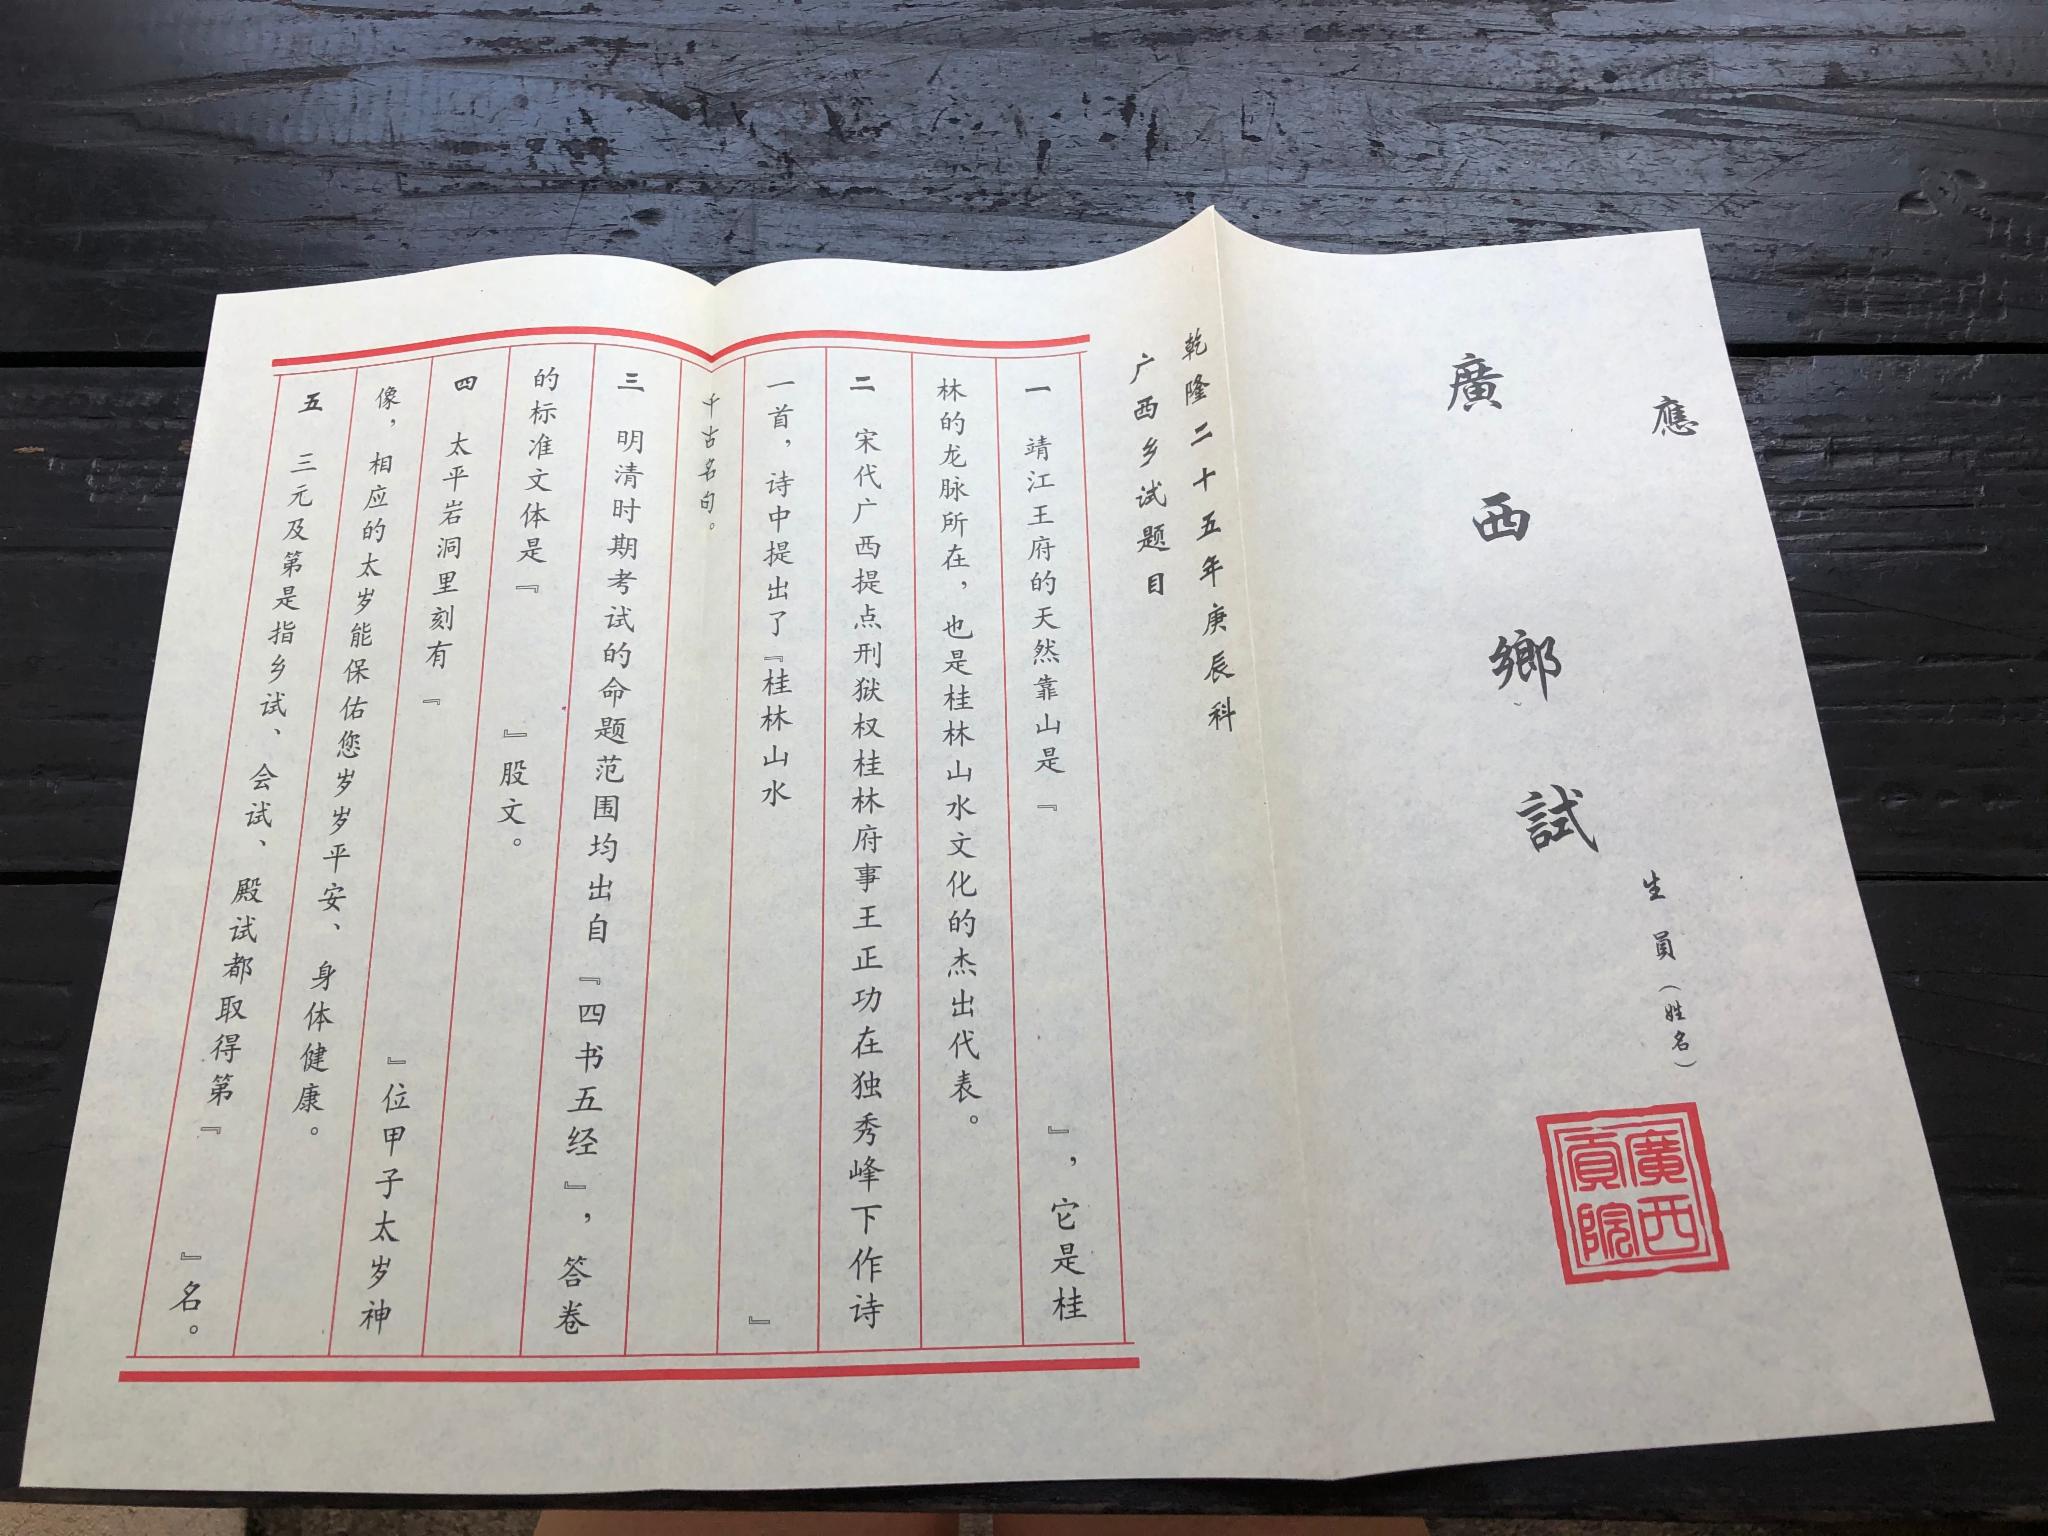 應
廣西鄉試
生員（姓名）
廣西
貢院
乾隆二十五年庚辰科
广西乡试题目
一 靖江王府的天然靠山是『 』，它是桂
林的龙脉所在，也是桂林山水文化的杰出代表。
二 宋代广西提点刑狱权桂林府事王正功在独秀峰下作诗
一首，诗中提出了『桂林山水 』
千古名句。
三 明清时期考试的命题范围均出自『四书五经』，答卷
的标准文体是『 』股文。
四 太平岩洞里刻有『 』位甲子太岁神
像，相应的太岁能保佑您岁岁平安、身体健康。
五 三元及第是指乡试、会试、殿试都取得第『 』名。